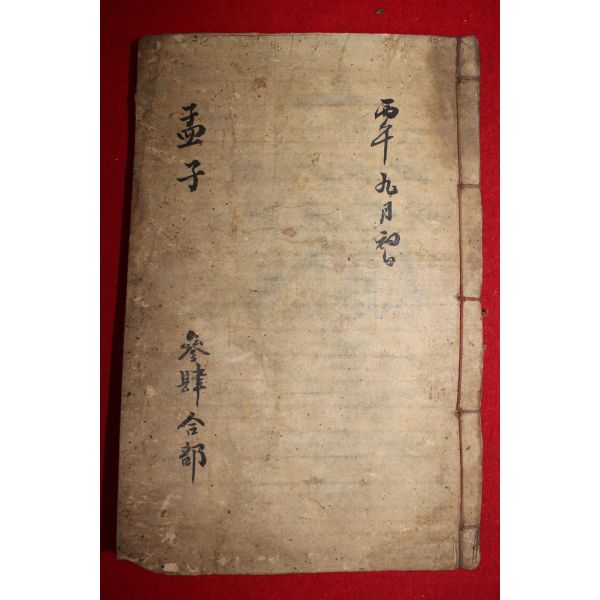 丙午 九月 初日
孟子
參肆 合部